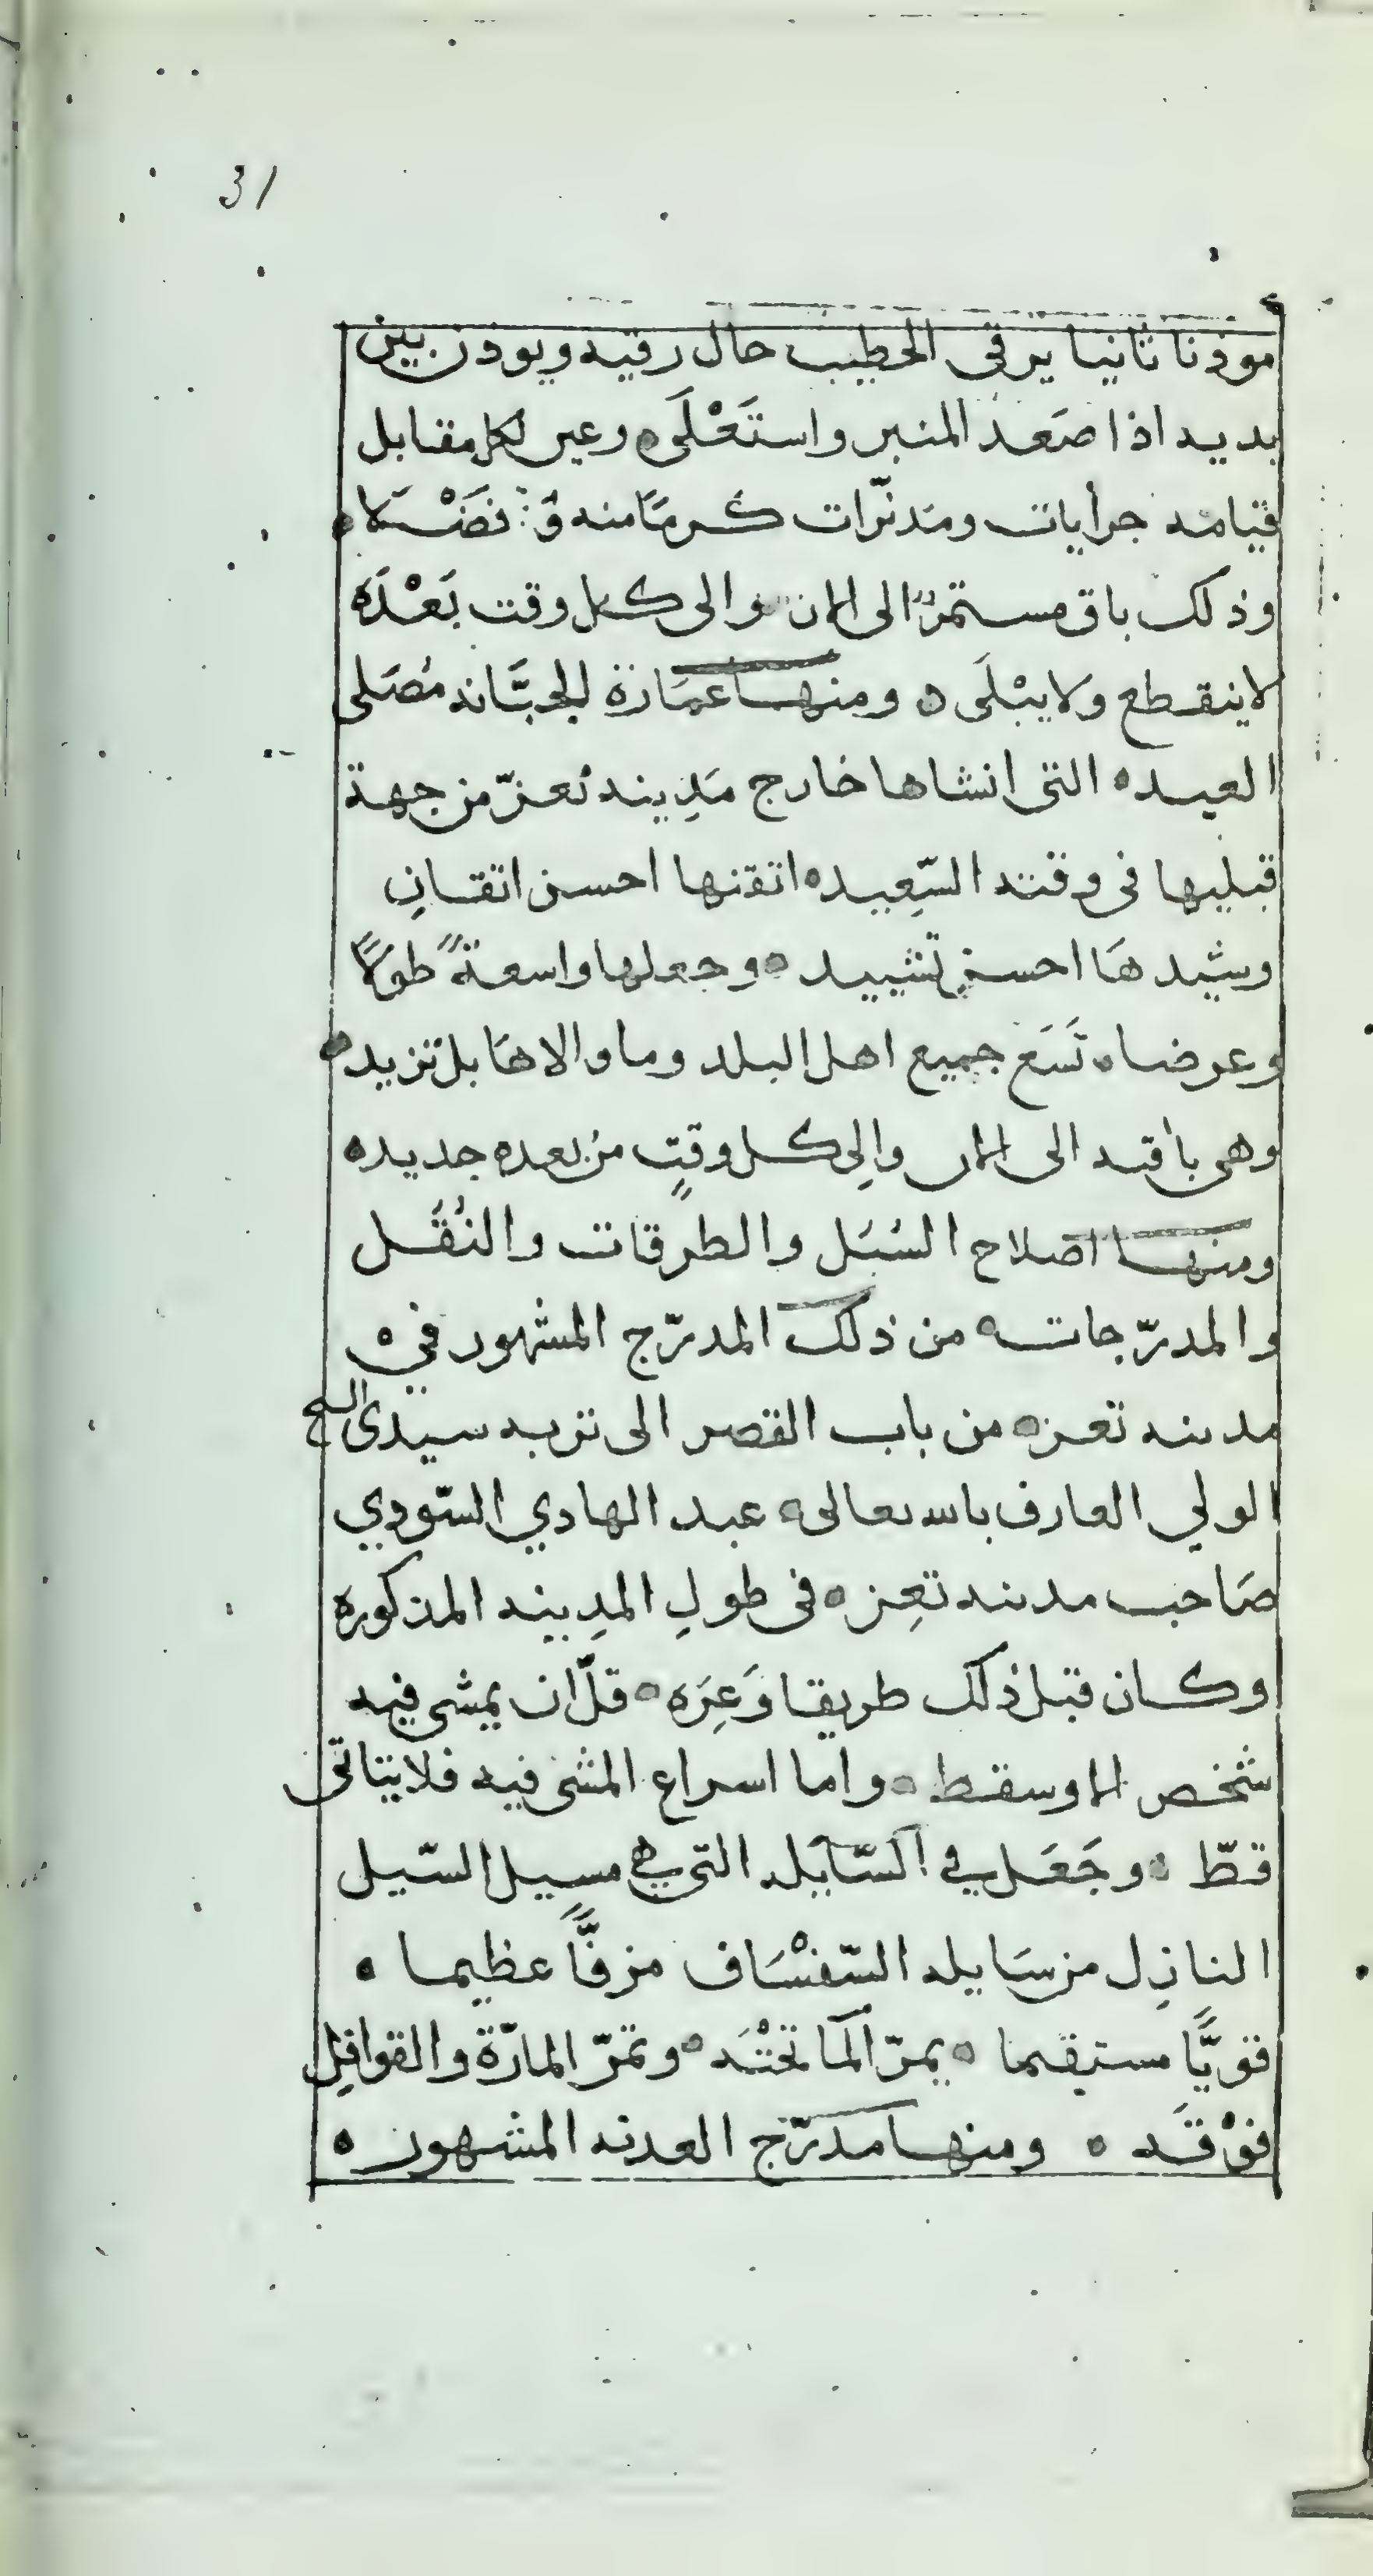 31
موذنا ثانيا يرقي الخطيب حال رقيه ويوذن بين
يديه اذا صَعد المنبر واستَعْلَى ه وعين لكل مقابل
قيامه جرايات كرمًا منه وَفضْلا ه
وذلك باق مستمرّ الى الان والى كل وقت بَعْدَه
لا ينقطع ولا يبْلَى ه ومنها عمَارة الجبَّانه مُصَلى
العيد ه التى انشاها خارج مَدِينه تعزّ من جهة
قبليها فى وقته السّعيد ه اتقنها احسن اتقانِ
وشيد هَا احسن تشييد ه وجعلها واسعةً طولاً
وعرضا ه تَسَع جميع اهل البلد وما والاهَا بل تزيد ه
وهى باقيه الى الان والِى كل وقتٍ من بعده جديده
ومنها اصلاح السُبَل والطرقات والنُقُل
والمدرّجات ه من ذلك المدرّج المشهور في ه
مدينه تعز ه من باب القصر الى تربه سيدى الشيخ
الولي العارف بالله تعالى ه عبد الهادي السّودي
صَاحب مدينه تعِز ه فى طولِ المدِينه المذكوره
وكان قبل ذلك طريقا وَعِرَه ه قلّ ان يمشى فيه
شخص الا وسقط ه واما اسراع المشى فيه فلا يتاتى
قطّ ه وجَعَل في السَّايله التي هي مسيل السّيل
النازِل من سَايله السّفسَاف مزفًّا عظيما ه
قويًّا مستيقما ه يمرّ المَا تحْتَه ه وتمرّ المارّة والقوافِل
فوْقَه ه ومنها مدرّج العدنه المشهور ه